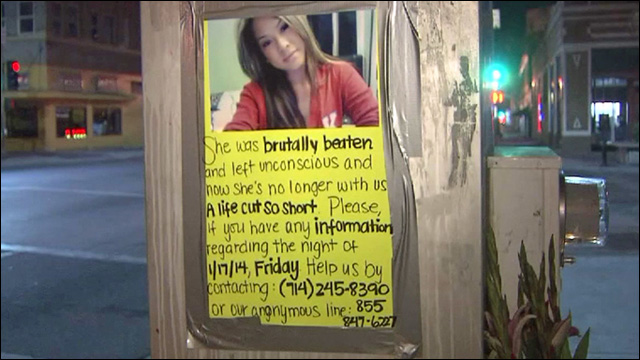 She was brutally beaten
and left unconscious and
now she's no longer with us
A life cut so short. Please,
if you have any information
regarding the night of
1/17/14, Friday Help us by
contacting: (714) 245-8390
or our anonymous line: 855
847-6227